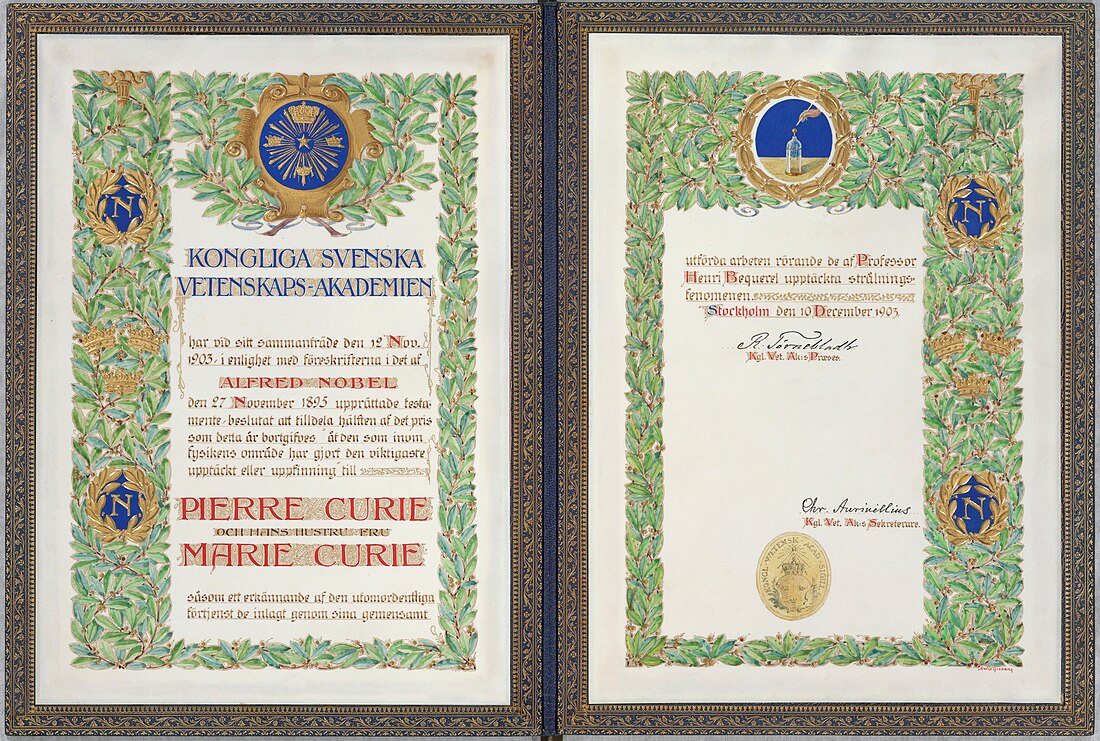 N
KONGLIGA SVENSKA
VETENSKAPS-AKADEMIEN
har vid sitt sammanträde den 12 Nov.
1903, i enlighet med föreskrifterna i det af
ALFRED NOBEL
den 27 November 1895 upprättade testa-
mente, beslutat att tilldela hälften af det pris
som detta år bortgifves åt den som inom
fysikens område har gjort den viktigaste
upptäckt eller uppfinning till
N
PIERRE CURIE
OCH HANS HUSTRU FRU
MARIE CURIE
såsom ett erkännande af den utomordentliga
förtjenst de inlagt genom sina gemensamt
utförda arbeten rörande de af Professor
Henri Bequerel upptäckta strålnings-
fenomenen
Stockholm den 10 December 1903.
R. Törnebladh
Kgl. Vet. Ak:s Præses.
Chr. Aurivillius
Kgl. Vet. Ak:s Sekreterare.
N
N